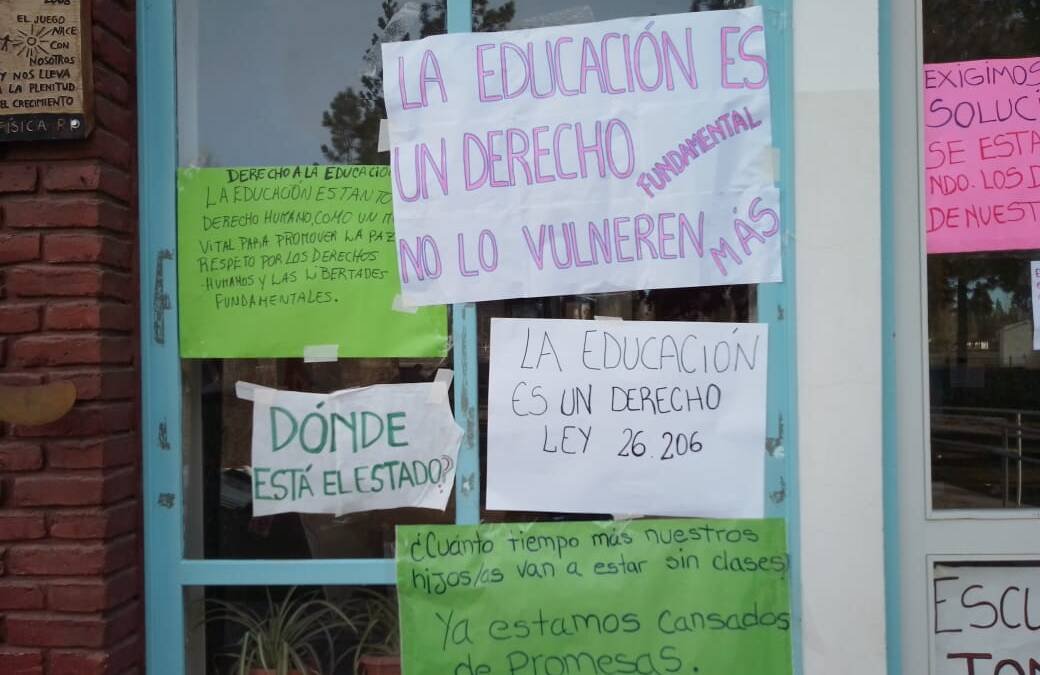 2008
EL JUEGO
NACE
CON
NOSOTROS
Y NOS LLEVA
A LA PLENITUD
EL CRECIMIENTO
FÍSICA P.P
LA EDUCACIÓN ES
UN DERECHO
FUNDAMENTAL
NO LO VULNEREN
MÁS
DERECHO A LA EDUCACIO
LA EDUCACIÓN ES TANTO
DERECHO HUMANO, COMO UN
VITAL PARA PROMOVER LA PAZ
RESPETO POR LOS DERECHOS
HUMANOS Y LAS LIBERTADES
FUNDAMENTALES.
DÓNDE
ESTÁ EL ESTADO?
LA EDUCACIÓN
ES UN DERECHO
LEY 26.206
¿Cuánto tiempo más nuestros
hijos/as van a estar sin clases?
Ya estamos cansados
de Promesas.
EXIGIMOS
SOLUCI
SE ESTA
NDO. LOS D
DE NUEST
ESCU
TOM